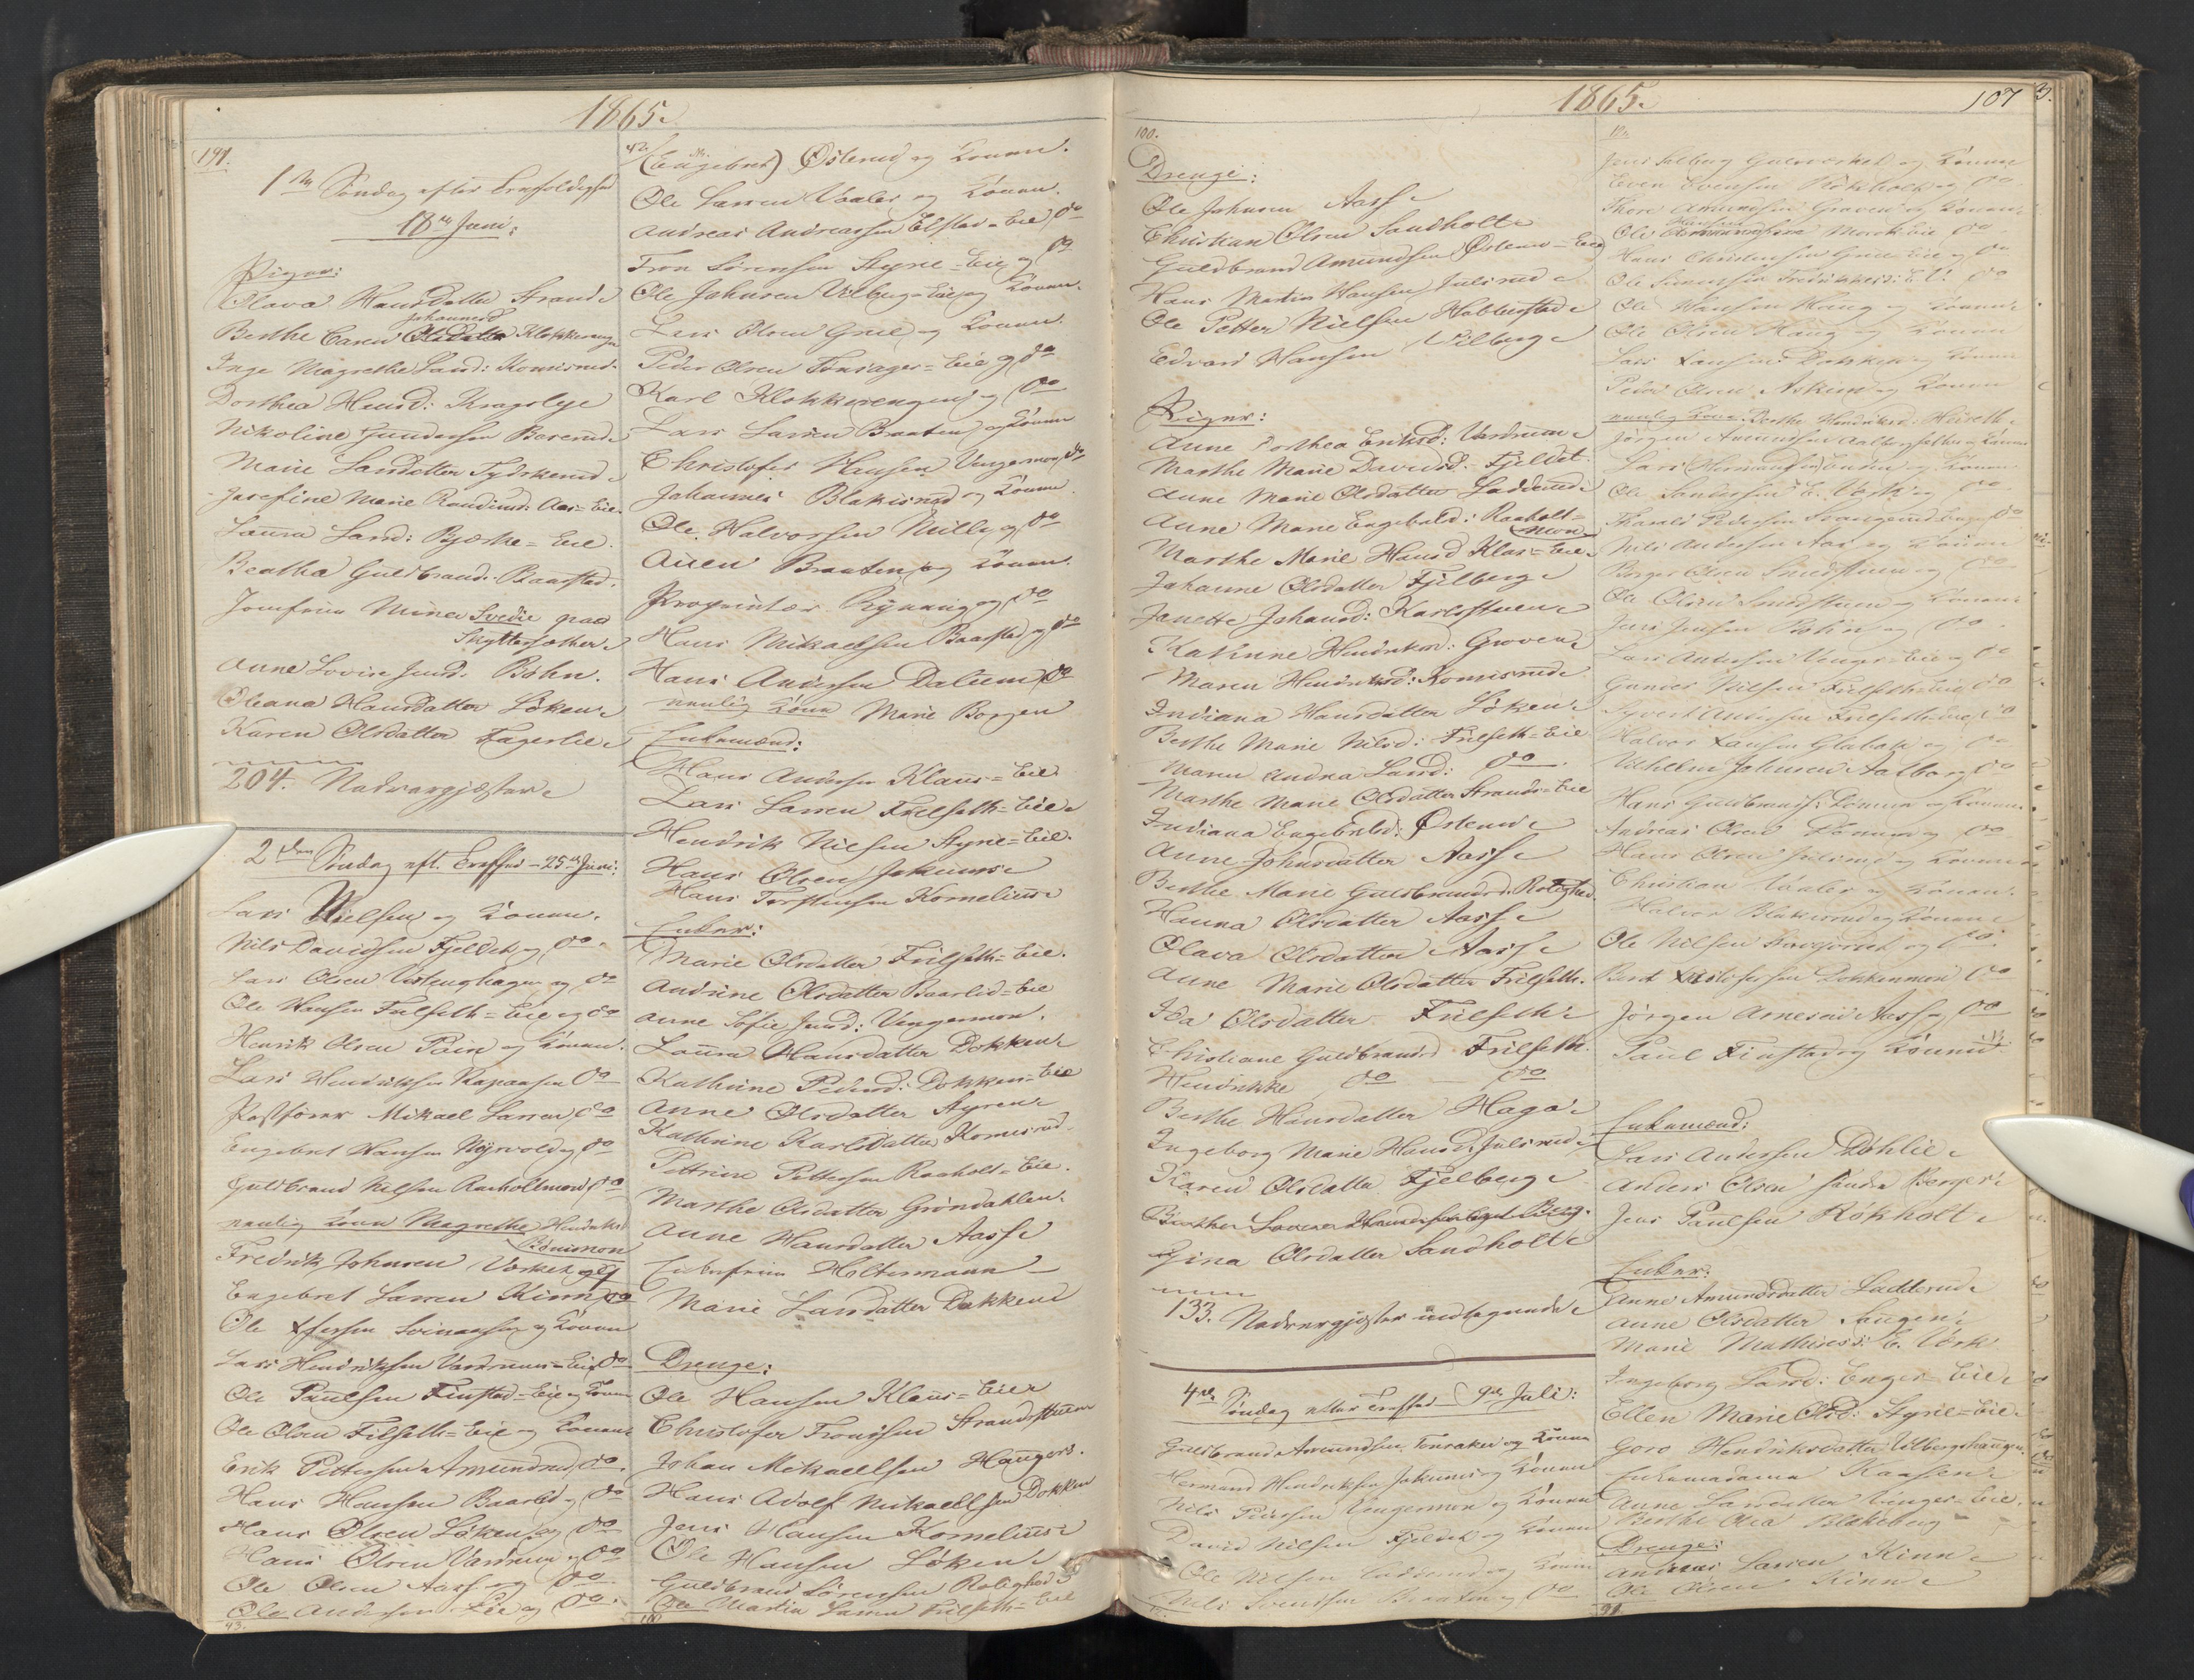 1865.
191.
1ste Søndag efter Trefoldighed
18de Juni:
Piger:
Olava Hansdatter Strand
Johannesd
Berthe Caren Olsdatter Klokkerenge
Inge Magrethe Larsd: Komisrud.
Dorthea Hansd: Kragsleje
Nikoline Gundersen Borerud
Marie Larsdatter Tydskerud
Josefine Marie Raudiusd: Aas=Eie.
Laura Larsd: Bjørke=Eie.
Beatha Guldbrands. Baarstad.
Jomfru Mina Svedie paa
Skyttesæther
Anne Lovise Jensd. Bøhn.
Oleana Hansdatter Løken
Karen Olsdatter Fagerlie
204. Nadvergjæster
2den Søndag eft. Treffhd - 25de Juni:
Lars Nielsen og Konen.
Nils Davidsen Fjeldet og do.
Lars Olsen Vestenghagen og do
Ole Hansen Frilseth=Eie og do
Henrik Olsen Pain og Konen.
Lars Hendriksen do
Postfører Mikael Larsen do
Engebret Hansen Nyvold og do
Guldbrand Nilsen Raaholtmoen do
nemlig Konen Magrethe Hendriksd
Bønsmoen
Fredrik Johnsen Værket og
Engebret Larsen Kinn do
Ole og Konen
Lars Hendriksen Vardrum=Eie do
Ole Paulsen Finstad=Eie og Konen
Ole Olsen Filseth=Eie og Konen
Erik Pettersen Amundrud do.
Hans Hansen Baarlid og do
Hans Olsen Løken og do
Hans Olsen Vardrum og do
Ole Olsen Aass og do
Ole Andersen Lie og do.
43.
42.
(Engebret) Østerud og Konen.
Ole Larsen Vaaler og Konen.
Andreas Andreassen Elstad=Eie do
Tron Sørensen Styrie=Eie og do
Ole Johnsen Vilberg=Eie og Konen.
Lars Olsen Grue og Konen.
Peder Olsen Tonsager=Eie og do
Karl Klokkerengen og do
Lars Larsen Braaten og Konen
Christofer Hansen Vengermoen do
Johannes Blakisrud og Konen
Ole Halvorsen Nille og do
Auen Braaten og Konen.
Proprietær Rynning og do
Hans Mikaelsen Baarstad og do
Hans Andersen Dalum do
nemlig Konen Marie Borgen
Enkemænd:
Hans Andersen Klaus=Eie
Lars Larsen Frilseth=Eie
Hendrik Nielsen Styrie=Eie.
Hans Olsen Jokums
Hans Torstensen Kornelius
Enker:
Marie Olsdatter Frilseth=Eie.
Andrine Olsdatter Baarlid=Eie
Anne Sofie Jensd: Vengermoen.
Laura Hansdatter Dokken
Kathrine Pedersd: Dokken=Eie
Anne Olsdatter Styren
Kathrine Karlsdatter Komisrud.
Pettrine Pettersen Raaholt=Eie.
Marthe Olsdatter Grøndahlen.
Anne Hansdatter Aass
Enkefrue Holtermann
Marie Larsdatter Dokken
Drenge:
Ole Hansen Klaus=Eie
Christofer Tronsen Strandstuen
Johan Mikaelsen Haugers.
Hans Adolf Mikaelsen Dokken
Jens Hansen Kornelius
Ole Hansen Løken
Guldbrand Sørensen Rolighed
Ole Martin Larsen Frilseth=Eie
100
1865.
107
3.
100.
Drenge:
Ole Johnsen Aass
Christian Olsen Sandholt
Guldbrand Amundsen Østerud=Eie
Hans Martin Hansen Julsrud
Ole Petter Nielsen Habberstad
Edvard Hansen Vilberg
Piger:
Anne Dorthea Eriksd: Vardrum
Marthe Marie Davidsd. Fjeldet.
Anne Marie Olsdatter Ladderud
Anne Marie Engebretsd: Raaholt=
moen
Marthe Marie Hansd Klas=Eie
Johanne Olsdatter Fjelberg
Janette Johansd: Karlsstuen
Kathrine Hendriksd: Groven
Maren Hendriksd: Komisrud
Indiana Hansdatter Løken
Berthe Marie Nilsd: Frilseth=Eie
Maren Andrea Larsd: do.
Marthe Marie Olsdatter Strands=Eie
Indiana Engebretsd: Østerud
Anne Johnsdatter Aass
Berthe Marie Guldbrandsd: Rolighed.
Hanna Olsdatter Aass
Olava Olsdatter Aass
Anne Marie Olsdatter Frilseth.
Ida Olsdatter Frilseth
Christiane Guldbrandsd Frilseth.
Hendrikke do do
Berthe Hansdatter Haga
Ingeborg Marie Hansd: Julsrud
Karen Olsdatter Fjelberg
Gina Olsdatter Sandholt
133. Nadvergjæster indtegnede
4de Søndag efter Trefhed - 9de Juli:
Guldbrand Amundsen Tonsaker og Konen
Hermand Hendriksen Jokums og Konen
Nils Pedersen Vengermoen og Konen
David Nilsen Fjeldet og Konen
Ole Nilsen Ladderud og Konen
Nils Svendsen Braaten og do
10.
Jens Solberg Guldværket og Konen
Even Evensen Rökholt og do
Thore Amundsen Graven og Konen
Hansen
Ole Mork Eie do
Hans Christensen Grue Eie og do
Ole Simensen do
Ole Hansen Haug og Konen
Ole Olsen Haug og Konen
Lars Larsen Dokken og Konen
Peder Olsen Askerud og Konen
nemlig Konen: Berthe Hendriksd: Hæseth
Jørgen Amundsen og Konen
Lars og Konen
Ole Andersen E. Værk og do
Tharald Pedersen do
Nils Andersen Aas og Konen
Børger Olsen Smedstuen og do
Ole Olsen Smedstuen og Konen
Jens Jensen og do.
Lars Andersen Venger=Eie og do
Gunder Nilsen Frilseth=Eie do
Syvert Andersen Frilseth=Eie do
Halvor Larsen og do
Vilhelm Johnsen Aalborg do
Hans Guldbrands: Dønnum og Konen
Andreas Olsen Dønnum og do
Hans Olsen Julsrud og Konen
Christian Vaaler og Konen.
Halvor Blakisrud og Konen
Ole Nilsen og do.
Dokkenmoen do
Jørgen Arnesen Aass og do
Paul Finstad og Konen
Enkemænd:
Lars Andersen Døhlie
Anders Olsen søndre Berger
Jens Paulsen Rökholt
Enker:
Anne Amundsdatter Ladderud
Anne Olsdatter Haugen
Marie Mathiesd: E. Værk
Ingeborg Larsd: Enger=Eie
Ellen Marie Olsd: Styrie=Eie
Goro Hendriksdatter Vilbergshaugen.
Enkemadame Kaasen
Anne Larsdatter Venger=Eie.
Berthe Olea Blakeberg
Drenge:
Andreas Larsen Kinn
Ole Olsen Kinn
91.